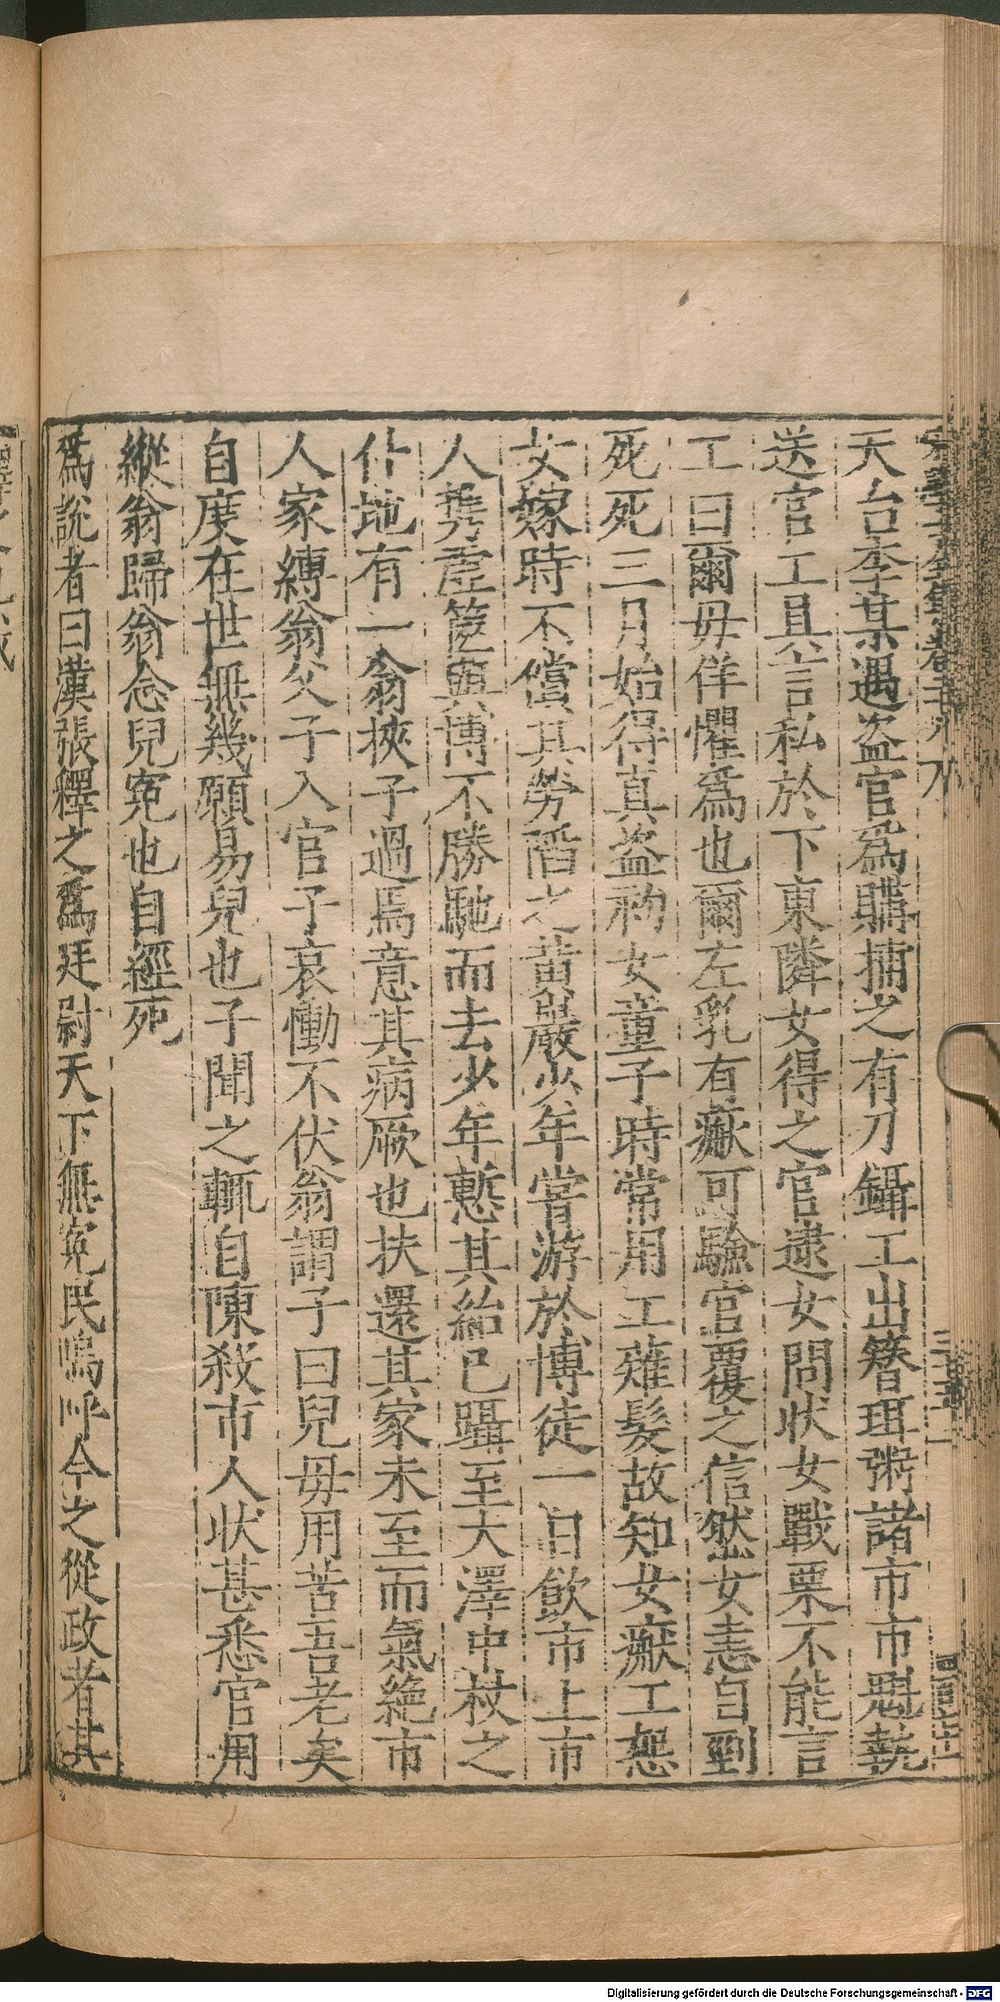 天台李某遇盜官爲購捕之有刀鑷工出簪珥粥諸市市魁執
送官工具言私於下東隣女得之官逮女問狀女戰栗不能言
工曰爾毋佯懼爲也爾左乳有瘢可驗官覆之信然女恚自剄
死死三月始得真盜初女童子時常用工薙髮故知女瘢工怨
女嫁時不償其勞陷之黃巖少年嘗游於博徒一日飲市上市
人携虛篋與博不勝馳而去少年慙其紿已躡至大澤中杖之
仆地有一翁挾子過焉意其病厥也扶還其家未至而氣絶市
人家縛翁父子入官子哀慟不伏翁謂子曰兒毋用苦吾老矣
自度在世無幾願易兒也子聞之輒自陳殺市人状甚悉官用
縱翁歸翁念兒寃也自經死
爲說者曰漢張釋之爲廷尉天下無寃民嗚呼今之從政者其
Digitalisierung gefördert durch die Deutsche Forschungsgemeinschaft - DFG